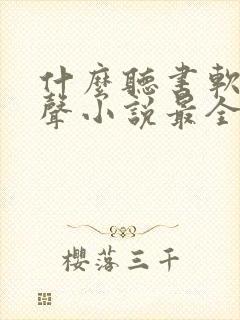 什麼聽書軟
聲小說最全
櫻落三千